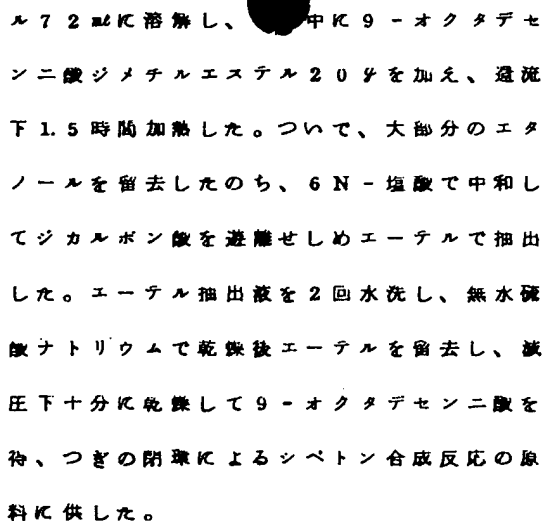 ル72mlに溶解し、中に9-オクタデセ
ン二酸ジメチルエステル20gを加え、還流
下1.5時間加熱した。ついで、大部分のエタ
ノールを留去したのち、6N-塩酸で中和し
てジカルボン酸を遊離せしめエーテルで抽出
した。エーテル抽出液を2回水洗し、無水硫
酸ナトリウムで乾燥後エーテルを留去し、減
圧下十分に乾燥して9-オクタデセン二酸を
得、つぎの閉環によるシベトン合成反応の原
料に供した。